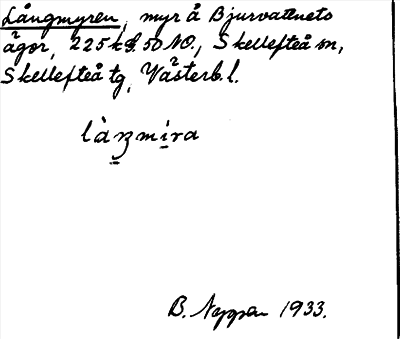 Långmyren, myr å Bjurvattnets
ägor, 225 kg. 50 NO., Skellefteå sn,
Skellefteå tg, Västerb. l.
làŋmíra
B. 1933.